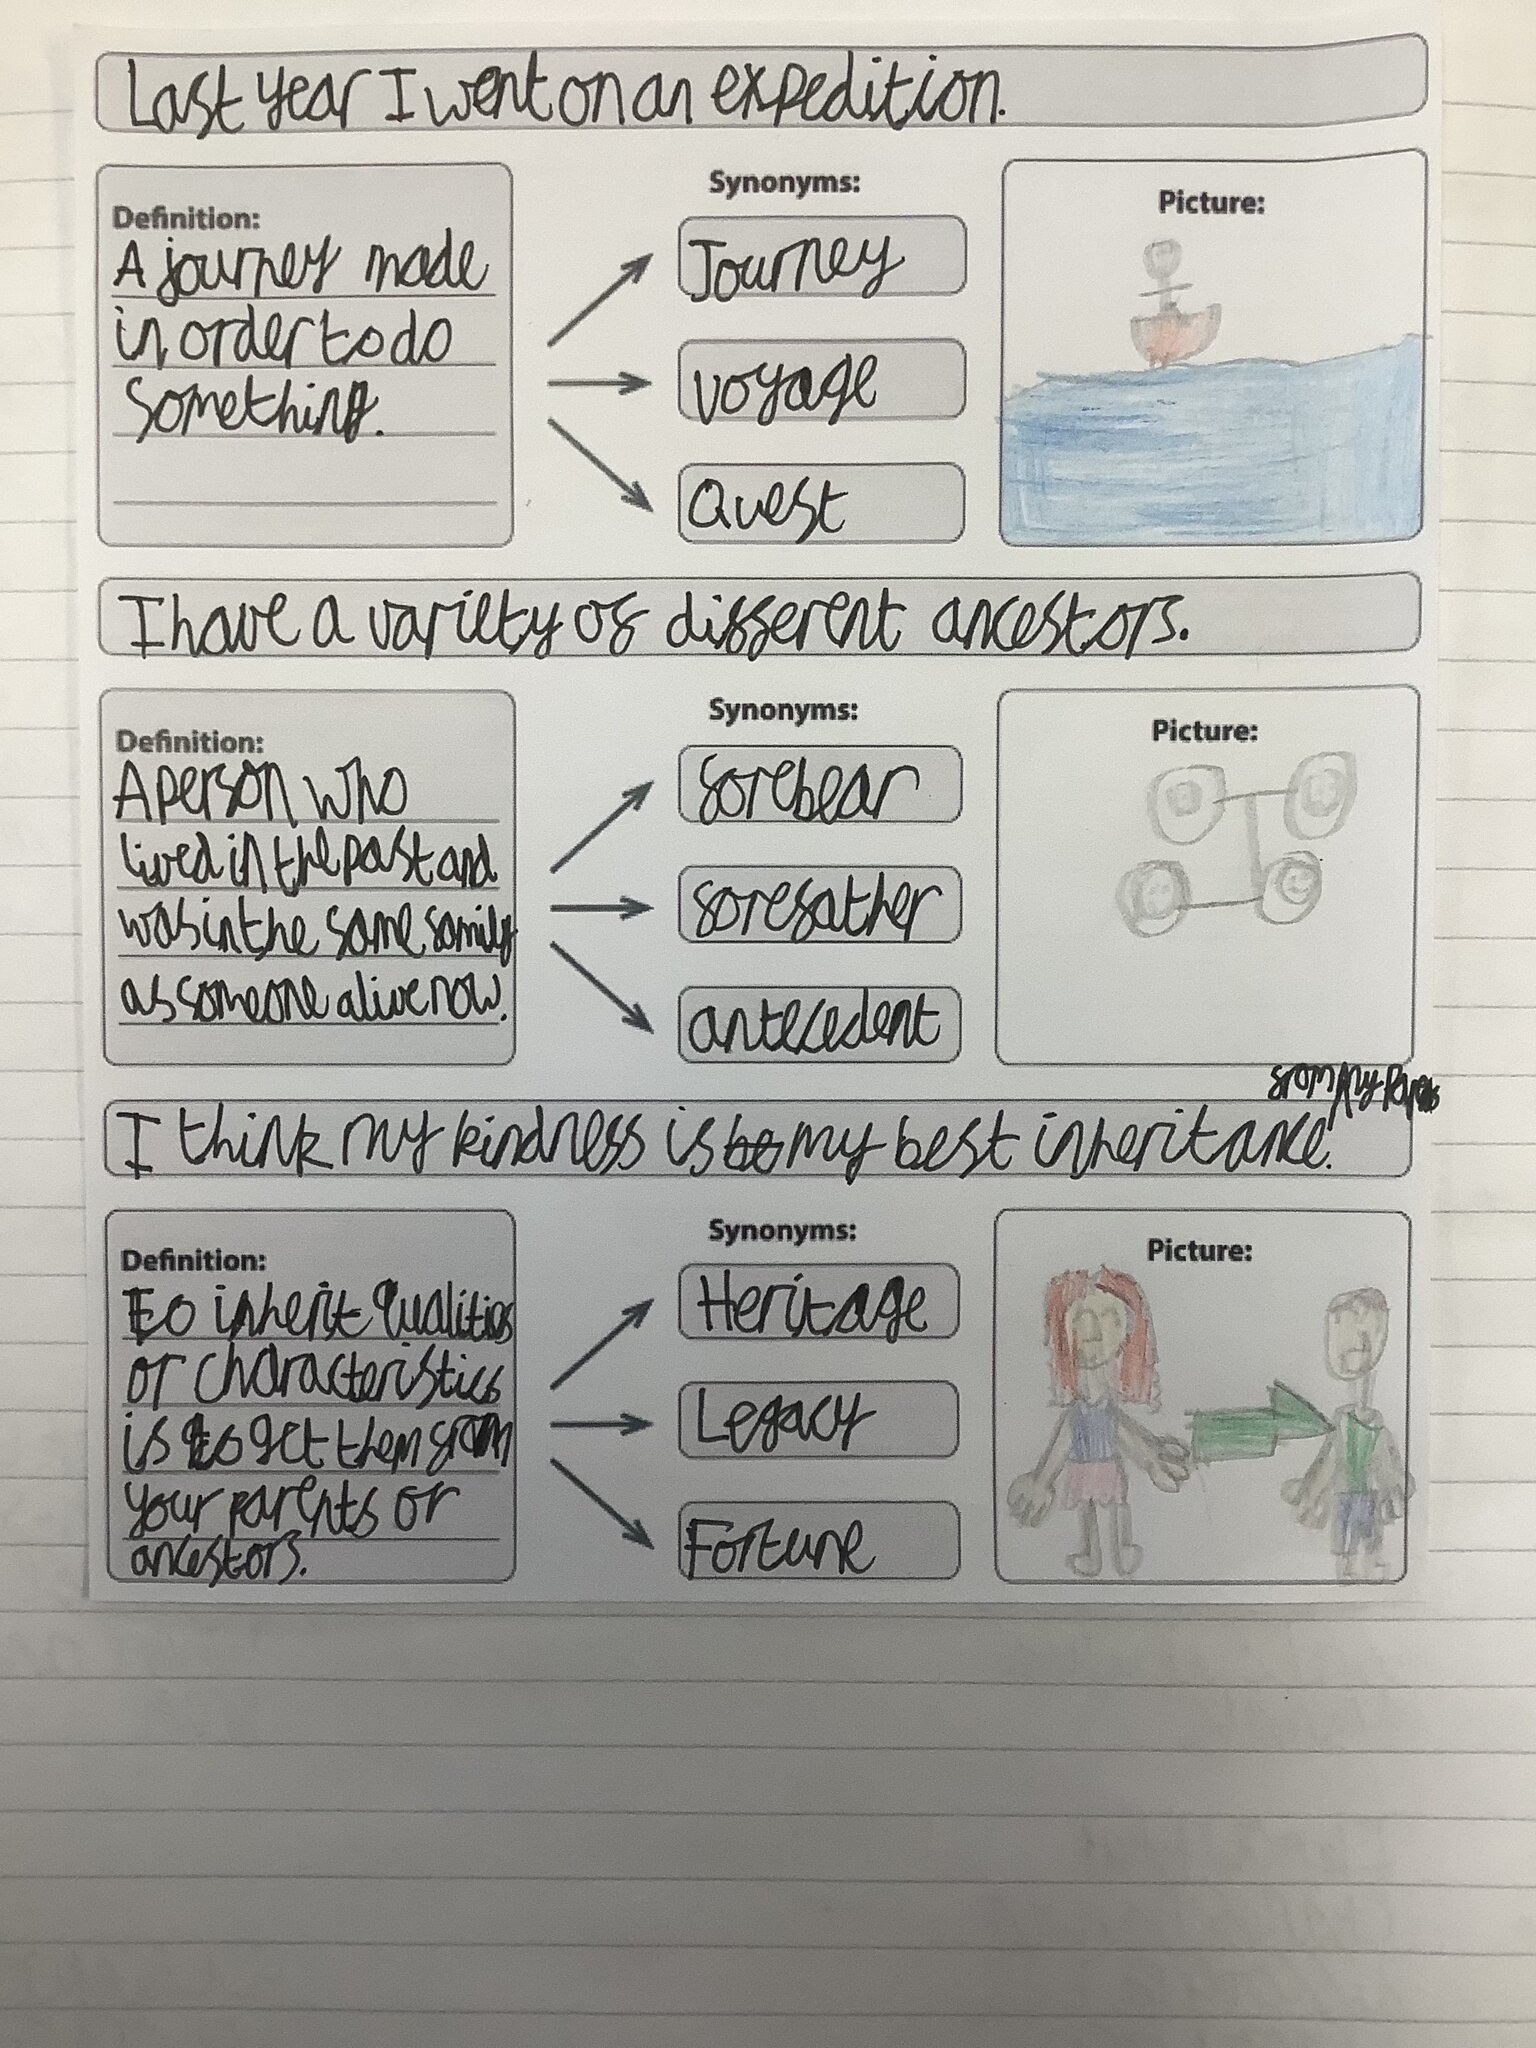 Last year I went on an expedition.
Definition:
A journey made
in order to do
something.
Synonyms:
Journey
voyage
Quest
Picture:
I have a variety of different ancestors.
Definition:
A person who
lived in the past and
was in the same family
as someone alive now.
Synonyms:
forebear
forefather
antecedent
Picture:
from my parents
I think my kindness is my best inheritance.
Definition:
to inherit qualities
or characteristics
is to get them from
your parents or
ancestors.
Synonyms:
Heritage
Legacy
Fortune
Picture: